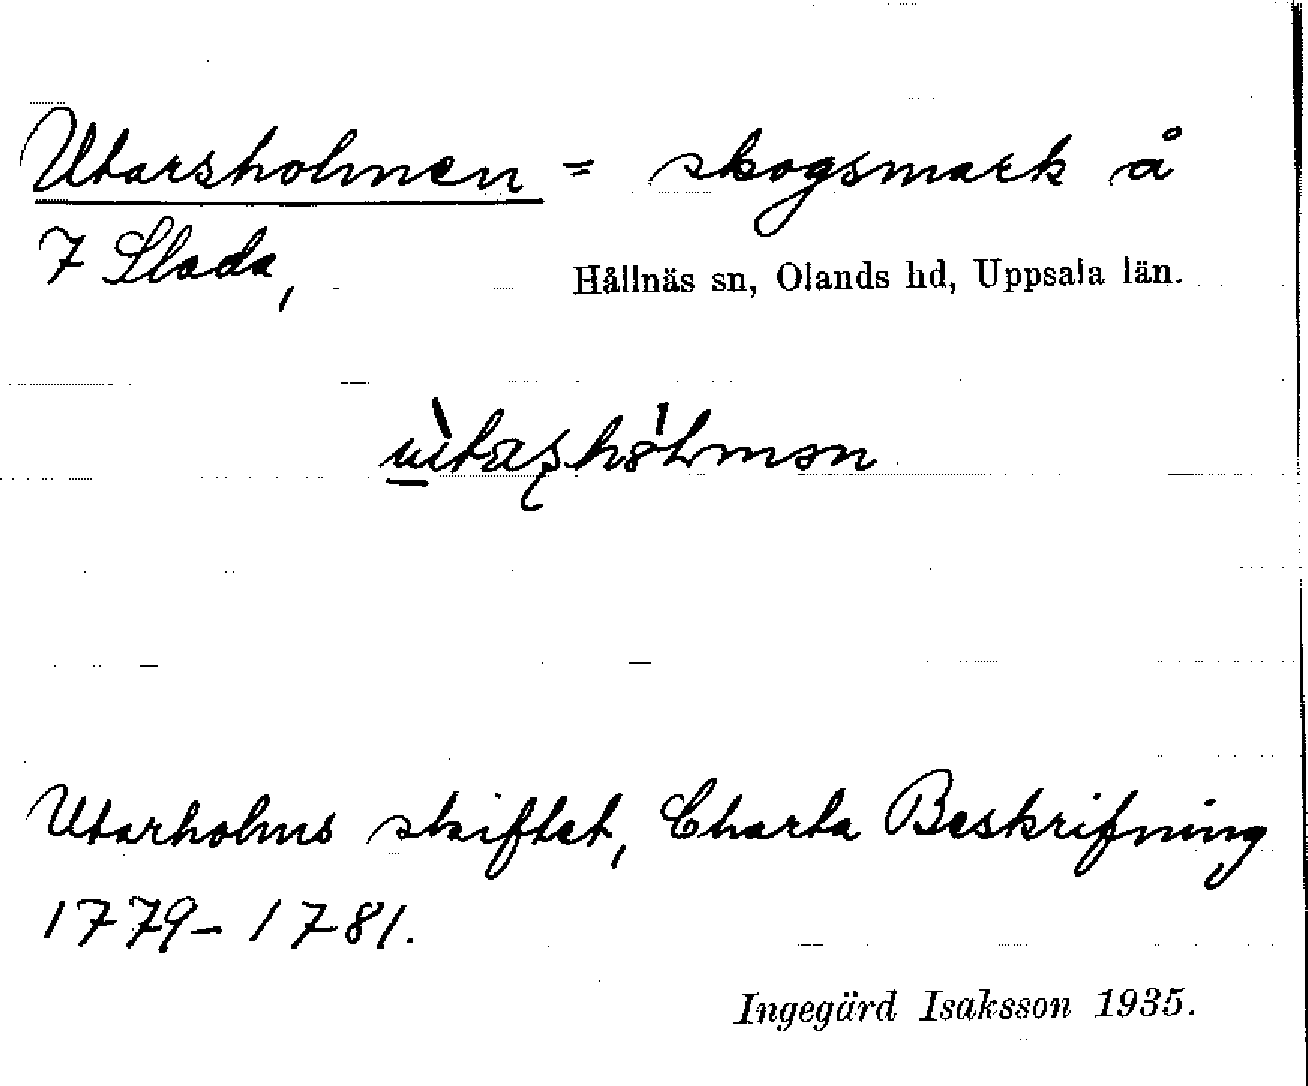 Utarsholmen = skogsmark å
7 Slada,
Hållnäs sn, Olands hd, Uppsala län.
Utarholms skiftet, Charta Beskrifning
1779-1781.
Ingegärd Isaksson 1935.